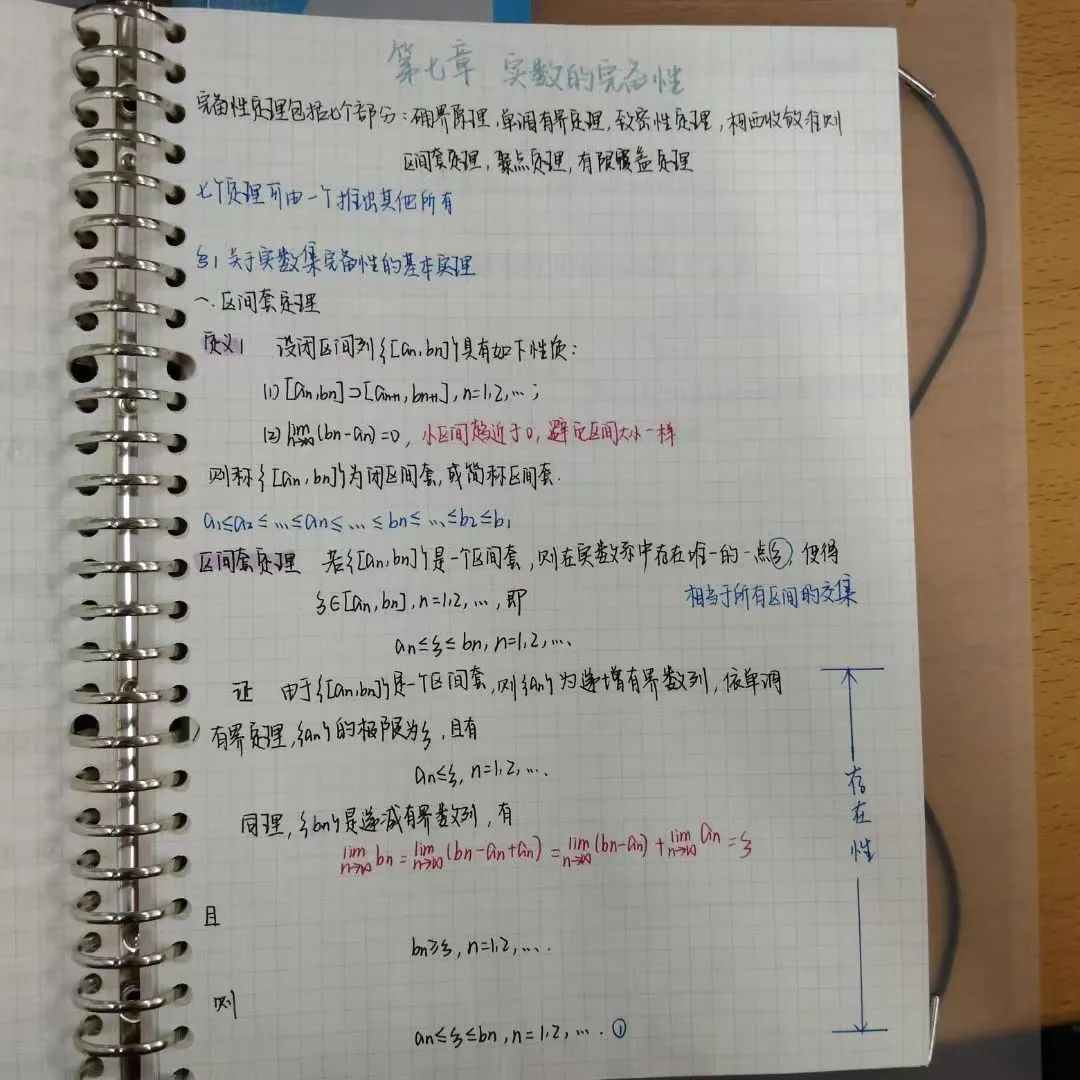 第七章 实数的完备性
完备性定理包括七个部分：确界原理，单调有界定理，致密性定理，柯西收敛准则
区间套定理，聚点定理，有限覆盖定理
七个定理可由一个推出其他所有
§1 关于实数集完备性的基本定理
一.区间套定理
定义1 设闭区间列{[an,bn]}具有如下性质：
(1)[an,bn]⊃[an+1,bn+1],n=1,2,…;
(2)lim n→∞(bn-an)=0，小区间趋近于0，避免区间大小一样
则称{[an,bn]}为闭区间套，或简称区间套.
a1≤a2≤…≤an≤…≤bn≤…≤b2≤b1
区间套定理 若{[an,bn]}是一个区间套，则在实数系中存在唯一的一点ξ，使得
ξ∈[an,bn],n=1,2,…,即
相当于所有区间的交集
an≤ξ≤bn,n=1,2,….
证 由于{[an,bn]}是一个区间套，则{an}为递增有界数列，依单调
有界定理，{an}的极限为ξ，且有
an≤ξ,n=1,2,….
同理，{bn}是递减有界数列，有
lim n→∞ bn = lim n→∞ (bn-an+an) = lim n→∞ (bn-an) + lim n→∞ an = ξ
且
bn≥ξ,n=1,2,….
则
an≤ξ≤bn,n=1,2,…. ①
存在性